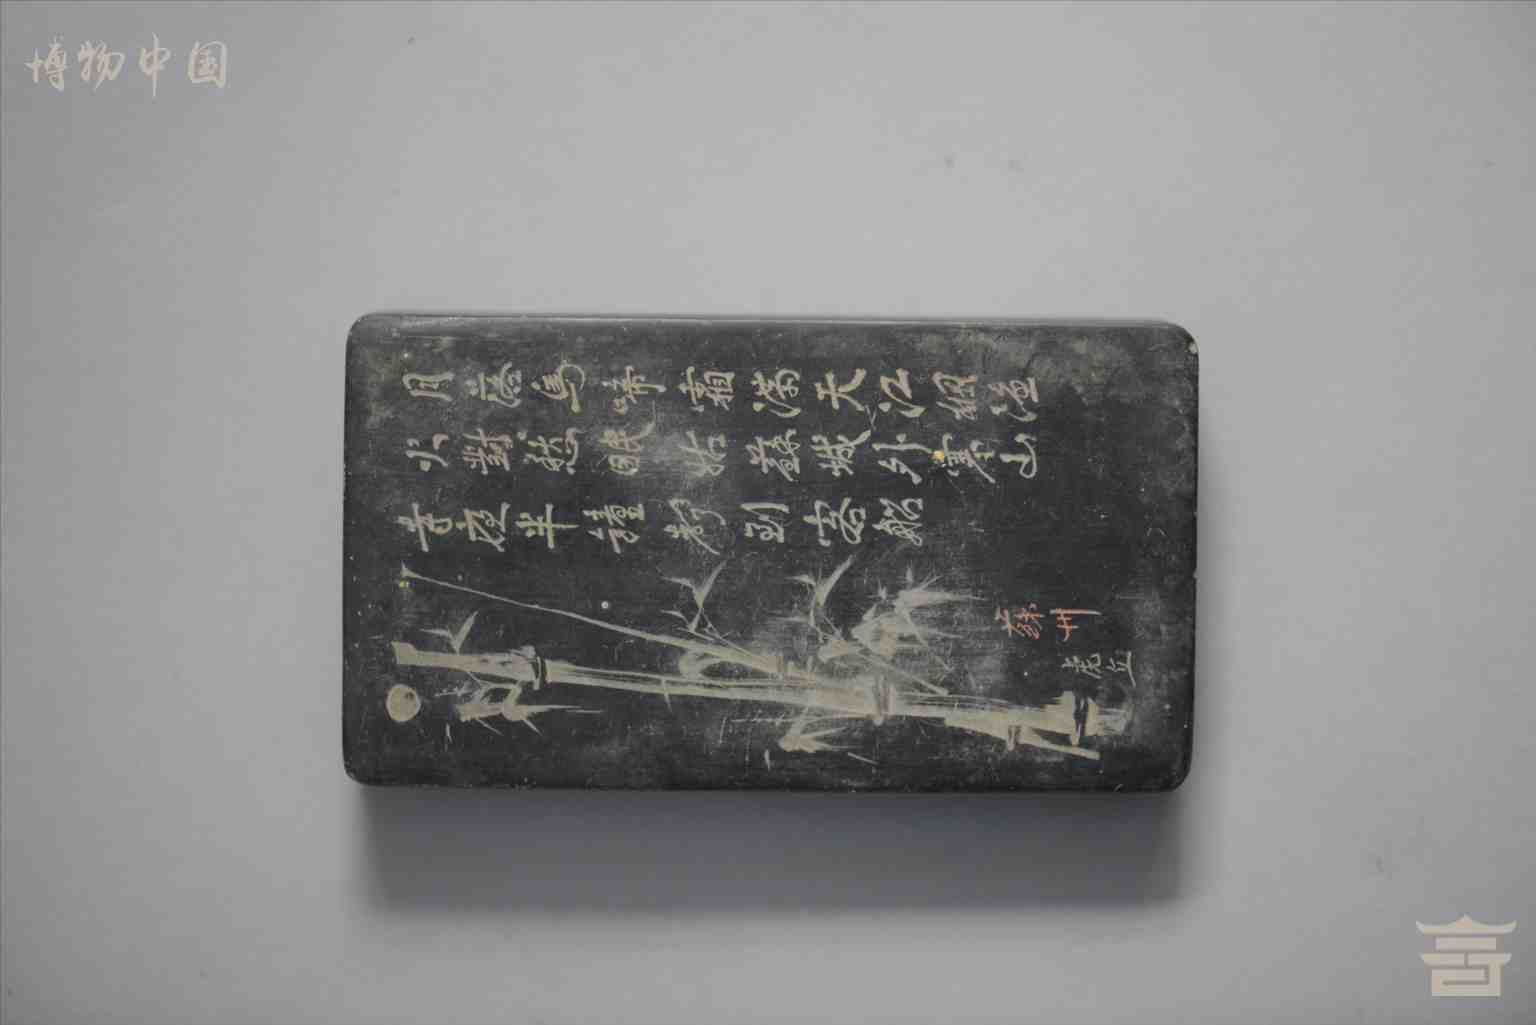 博物中国
月落烏啼霜滿天江楓漁
火對愁眠姑蘇城外寒山
寺夜半鐘聲到客船
蘇州
虎丘